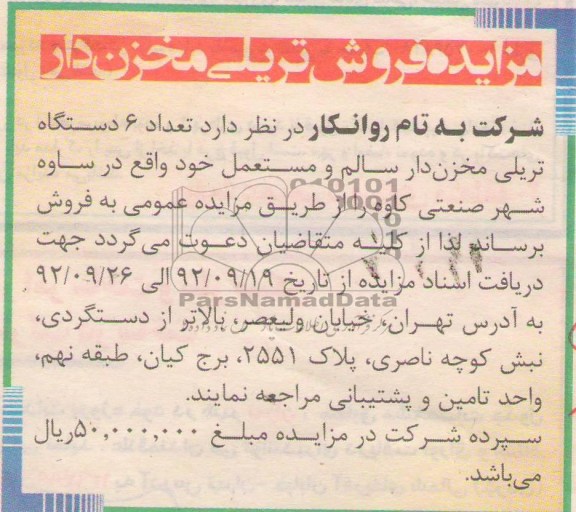 مزایده فروش تریلی مخزن دار
شرکت به تام روانکار در نظر دارد تعداد ۶ دستگاه
تریلی مخزن‌دار سالم و مستعمل خود واقع در ساوه
شهر صنعتی کاوه را از طریق مزایده عمومی به فروش
برساند لذا از کلیه متقاضیان دعوت می‌گردد جهت
دریافت اسناد مزایده از تاریخ ۹۲/۰۹/۱۹ الی ۹۲/۰۹/۲۶
ParsNamadData
به آدرس تهران، خیابان ولیعصر، بالاتر از دستگردی،
نبش کوچه ناصری، پلاک ۲۵۵۱، برج کیان، طبقه نهم،
واحد تامین و پشتیبانی مراجعه نمایند.
سپرده شرکت در مزایده مبلغ ۵۰,۰۰۰,۰۰۰ریال
می‌باشد.